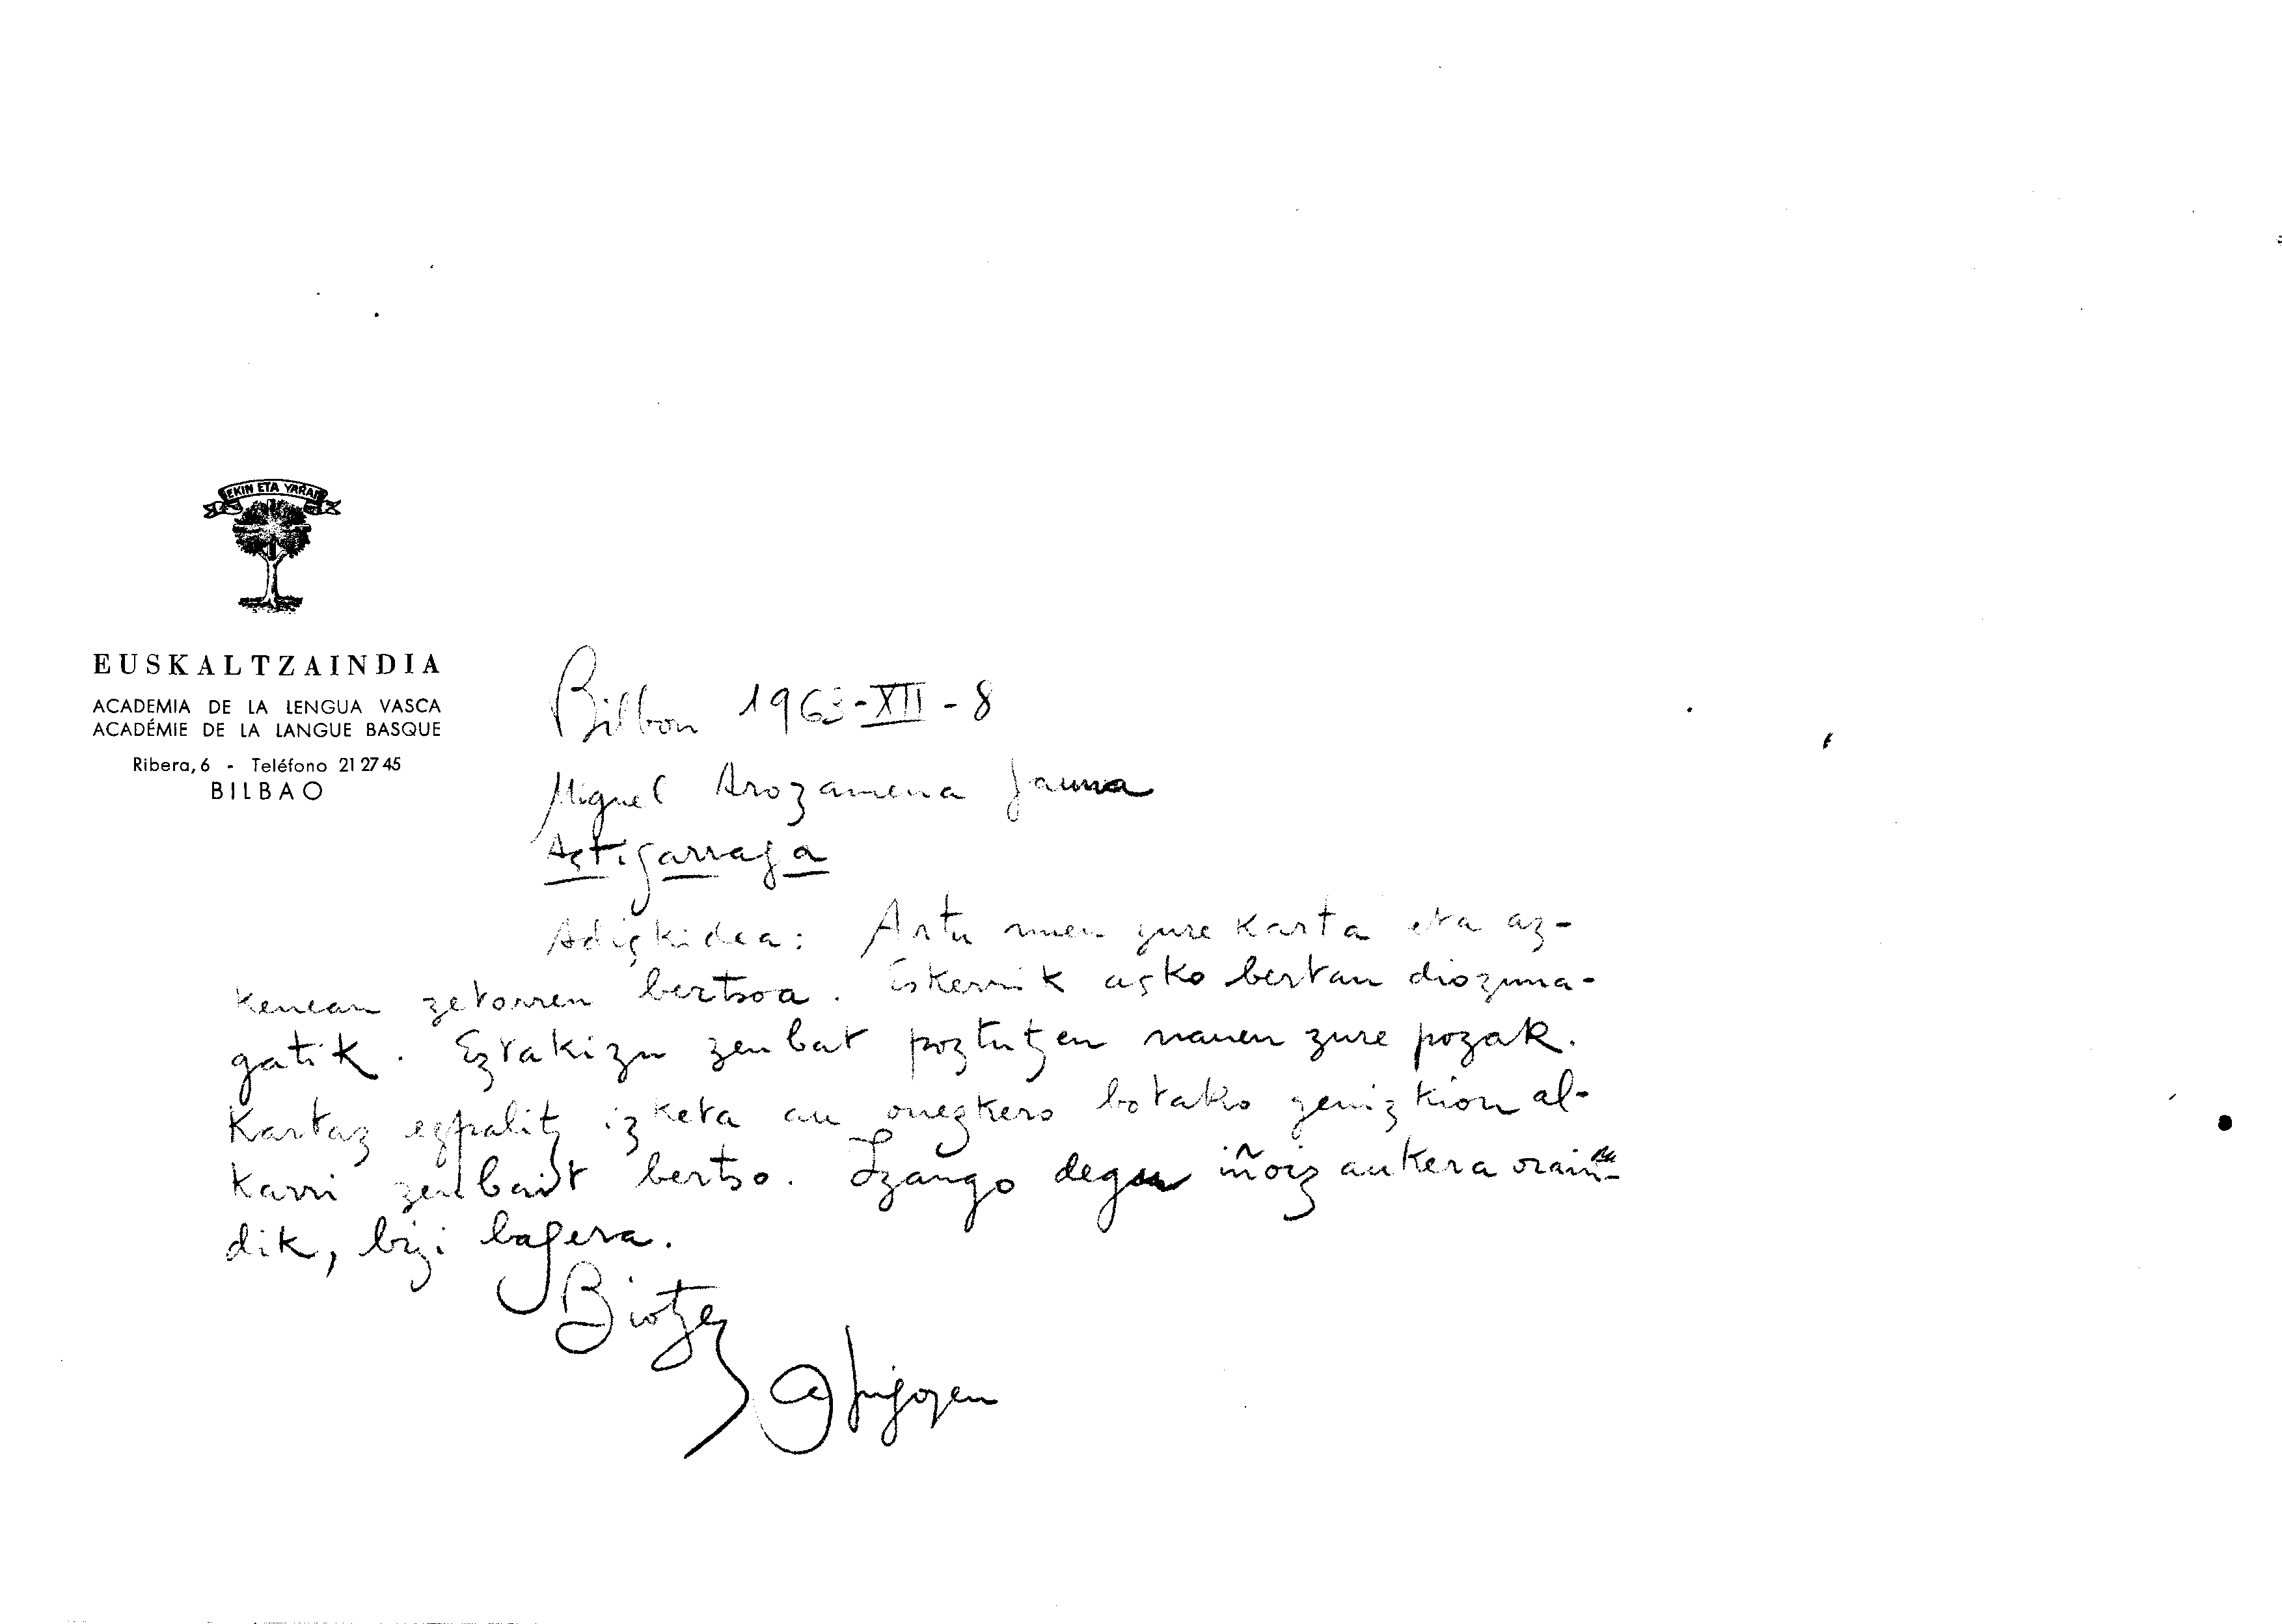 EKIN ETA YARRAI
EUSKALTZAINDIA
ACADEMIA DE LA LENGUA VASCA
ACADÉMIE DE LA LANGUE BASQUE
Ribera, 6 - Teléfono 21 27 45
BILBAO
Bilbon 1963-XII-8
Miguel Arozamena Jauna
Astigarraga
Adiskidea: Artu nuen zure karta eta az-
kenean zetorren bertsoa. Eskerrik asko bertan diozuna-
gatik. Eztakizu zenbat poztutzen nauen zure pozak.
Kartaz ezpalitz izketa au onezkero botako genizkion al-
karri zenbait bertso. Izango degu iñoiz aukera orain-
dik, bizi bagera.
Biotzez